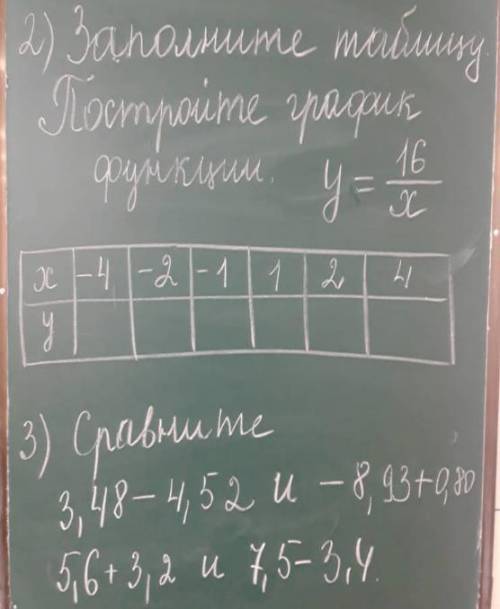 2) Заполните таблицу.
Постройте график
функции. y = 16/x
x -4 -2 -1 1 2 4
y
3) Сравните
3,48 - 4,52 и -8,93+0,80
5,6+3,2 и 7,5-3,4.